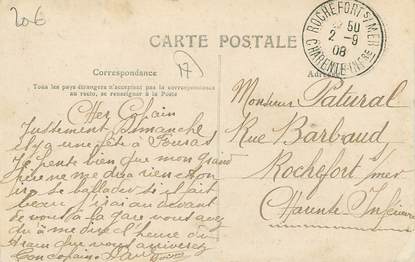 20€
CARTE POSTALE
ROCHEFORT S/MER
50
2 - 9
08
CHARENTE INFRE
Correspondance
17
Tous les pays étrangers n'acceptant pas la correspondance
au recto, se renseigner à la Poste
Adresse
Cher Copain
Justement Dimanche
il y a une fête à Fouras
Je pense bien que mon Grand
père ne me dira rien
se ballader si il fait
beau j'irai au devant
de vous à la gare vous avez
qu'à me dire l'heure du
train que vous arriverez
Ton copain
Monsieur Patural
Rue Barbaud
Rochefort s/mer
Charente Inférieure